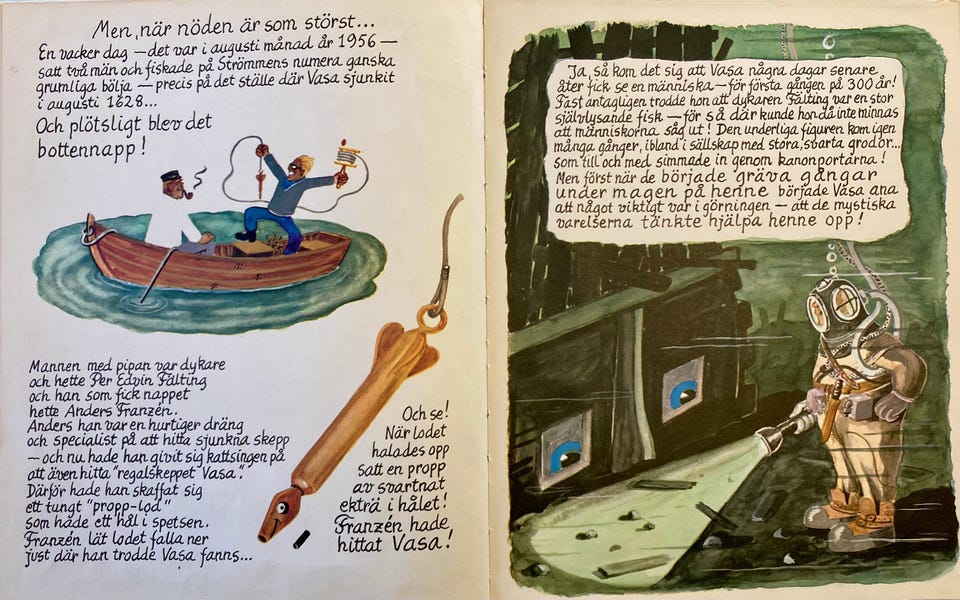 Men, när nöden är som störst...
En vacker dag – det var i augusti månad år 1956 –
satt två män och fiskade på Strömmens numera ganska
grumliga bölja – precis på det ställe där Vasa sjunkit
i augusti 1628...
Och plötsligt blev det
bottennapp!
Mannen med pipan var dykare
och hette Per Edvin Fälting
och han som fick nappet
hette Anders Franzén.
Anders han var en hurtiger dräng
och specialist på att hitta sjunkna skepp
– och nu hade han givit sig kattsingen på
att även hitta "regalskeppet Vasa".
Därför hade han skaffat sig
ett tungt "propp-lod"
som hade ett hål i spetsen.
Franzén lät lodet falla ner
just där han trodde Vasa fanns...
Och se!
När lodet
halades opp
satt en propp
av svartnat
ekträ i hålet!
Franzén hade
hittat Vasa!
Ja, så kom det sig att Vasa några dagar senare
åter fick se en människa – för första gången på 300 år!
Fast antagligen trodde hon att dykaren Fälting var en stor
självlysande fisk – för så där kunde hon då inte minnas
att människorna såg ut! Den underliga figuren kom igen
många gånger, ibland i sällskap med stora, svarta grodor...
som till och med simmade in genom kanonportarna!
Men först när de började gräva gångar
under magen på henne började Vasa ana
att något viktigt var i görningen – att de mystiska
varelserna tänkte hjälpa henne opp!